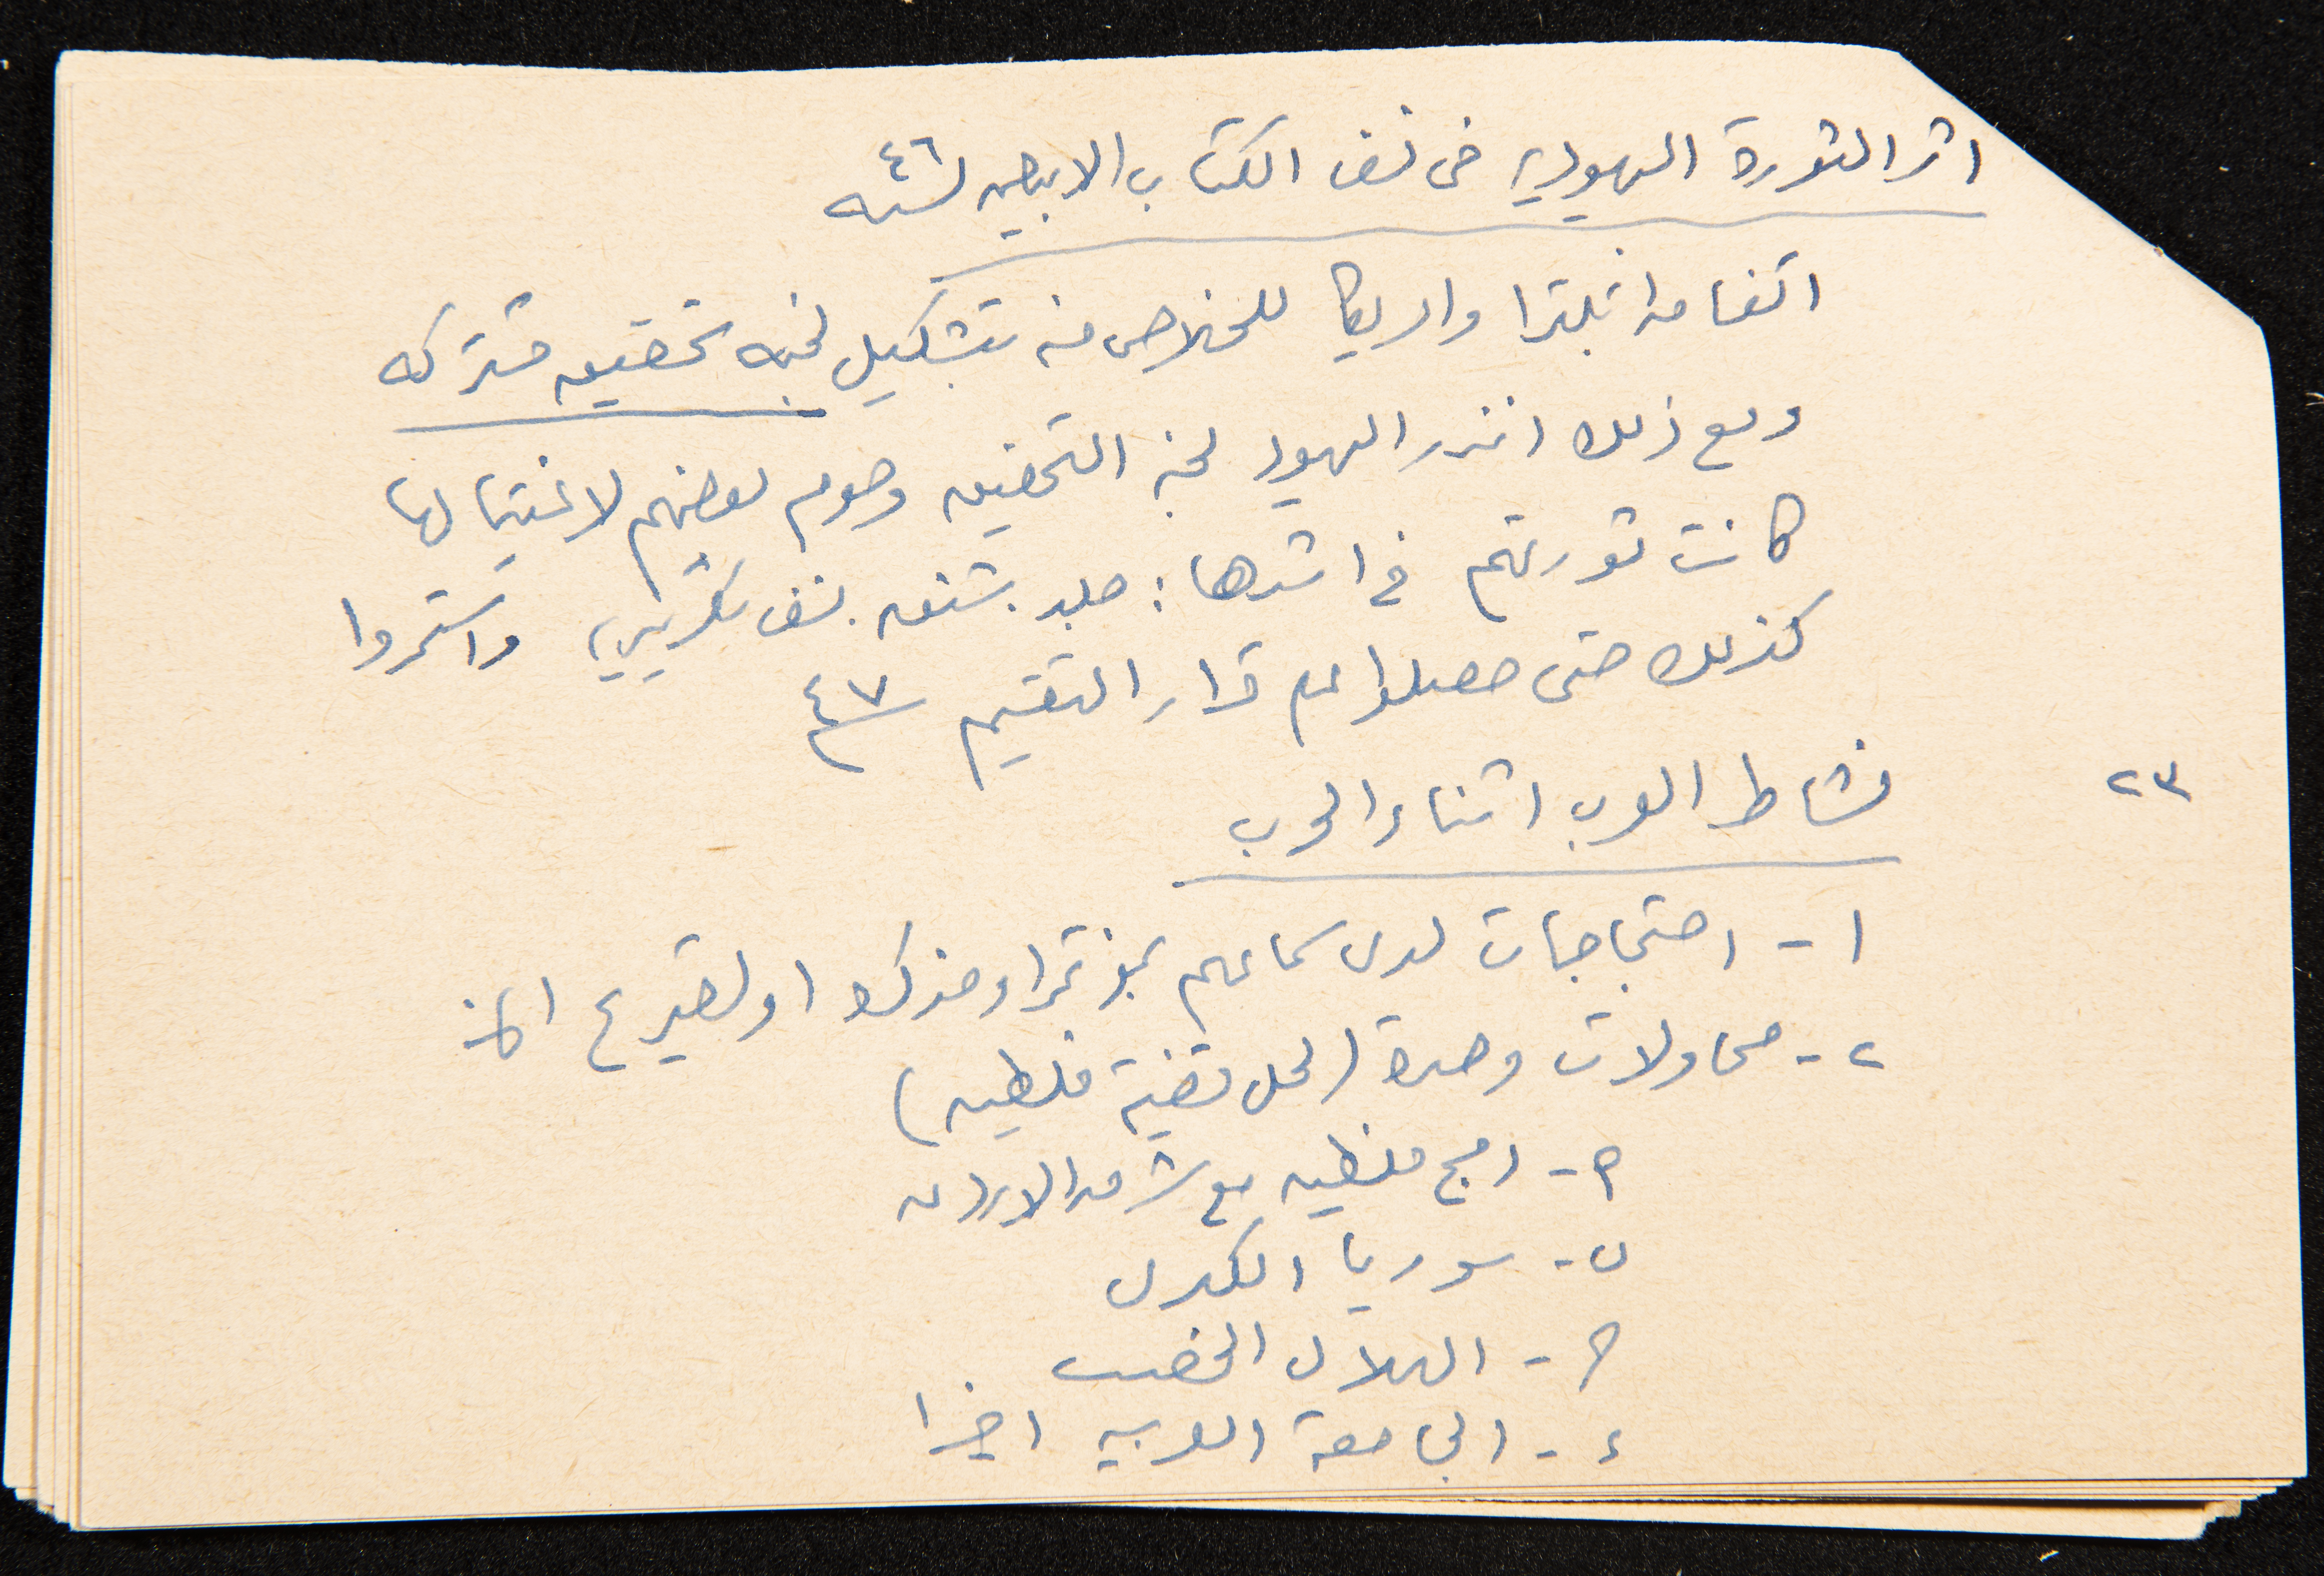 اثر الثورة اليهودية فى نسف الكتاب الابيض لسنه ٤٦
اتفاق انجلترا وامريكا للخلاص منه بتشكيل لجنه تحقيق مشتركه
ومع ذلك انذر اليهود لجنة التحقيق وصوم بعضهم لاغتيالها
كانت ثورتهم في اشدها: جلد بشنق، نسف بتخريب، واستمروا
كذلك حتى حصلوا على قرار التقسيم سنة ٤٧
٢٣ نشاط العرب اثناء الحرب
١- احتجاجات لدى سماعهم بمؤتمر او مذكرة او تصريح الخ
٢- محاولات وحدة (لحل قضية فلسطين)
م- دمج فلسطين مع شرق الاردن
ب- سوريا الكبرى
ح- الهلال الخصيب
ء- الجامعة العربية اخيرا